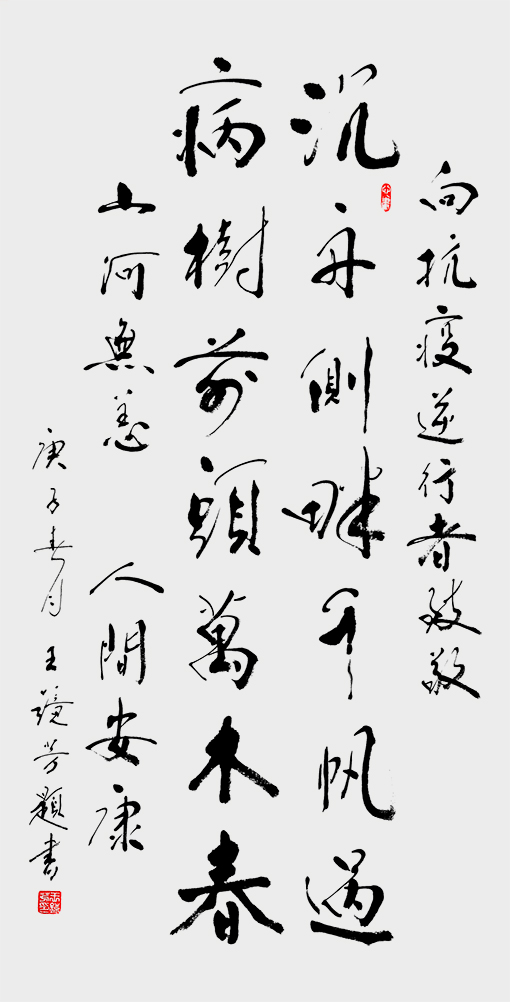 向抗疫逆行者致敬
沉舟側畔千帆過
病樹前頭萬木春
山河無恙 人間安康
庚子春月 王鏡芳題書